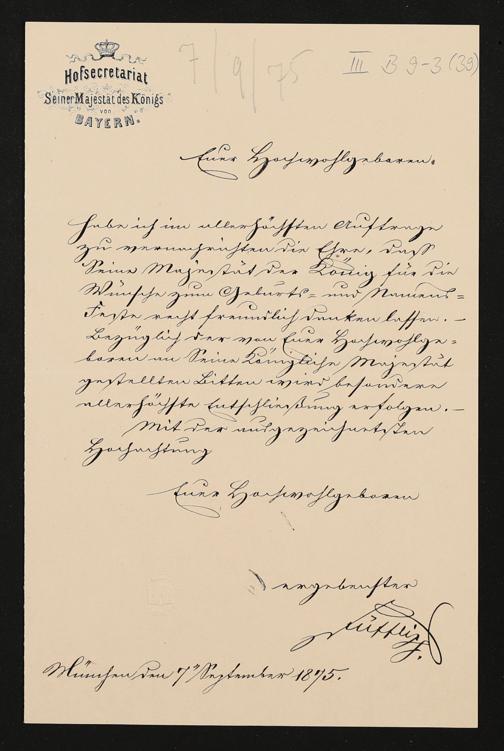 7/9/75
III B 9-3 (39)
Hofsecretariat
Seiner Majestät des Königs
von
BAYERN.
Euer Hochwohlgeboren.
habe ich im allerhöchsten Auftrage
zu vernachrichten die Ehre, dass
Seine Majestät der König für die
Wünsche zum Geburts- und Namens-
Feste recht freundlich danken lassen. —
Bezüglich der von Euer Hochwohlge-
boren an Seine Königliche Majestät
gestellten Bitten wird besondere
allerhöchste Entschließung erfolgen. —
Mit der ausgezeichnetsten
Hochachtung
Euer Hochwohlgeboren
ergebenster
München den 7t September 1875.